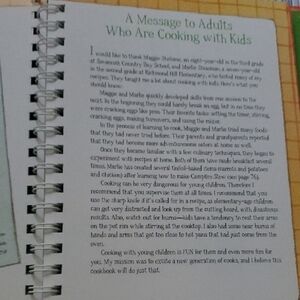 A Message to Adults
Who Are Cooking with Kids
I would like to thank Maggie Stefaine, an eight-year-old in the third grade
at Savannah Country Day School, and Marlie Donatson, a seven-year-old
in the second grade at Richmond Hill Elementary, who tested many of my
recipes. They taught me a lot about cooking with kids. Here's what you
should know:
Maggie and Marlie quickly developed skills from one session to the
next. In the beginning they could barely break an egg, but in no time they
were cracking eggs like pros. Their favorite tasks: setting the timer, stirring,
cracking eggs, making turnovers, and using the mixer.
In the process of learning to cook, Maggie and Marlie tried many foods
that they had never tried before. Their parents and grandparents reported
that they had become more adventuresome eaters at home as well.
Once they became familiar with a few culinary techniques, they began to
experiment with recipes at home. Both of them have made breakfast several
times. Marlie has created several
and chicken) after learning how to make Campfire Stew (see page
Cooking can be very dangerous for young children. Therefore I
recommend that you supervise them at all times. I recommend that you
use the sharp knife if it's called for in a recipe, as elementary-age children
can get very distracted and look up from the cutting board, with disastrous
results. Also, watch out for burns—kids have a tendency to rest their arms
on the pot rim while stirring at the cooktop. I also had some near burns of
hands and arms that got too close to hot pans that had just come from the
oven.
Cooking with young children is FUN for them and even more fun for
you. My mission was to create a new generation of cooks, and I believe this
cookbook will do just that.